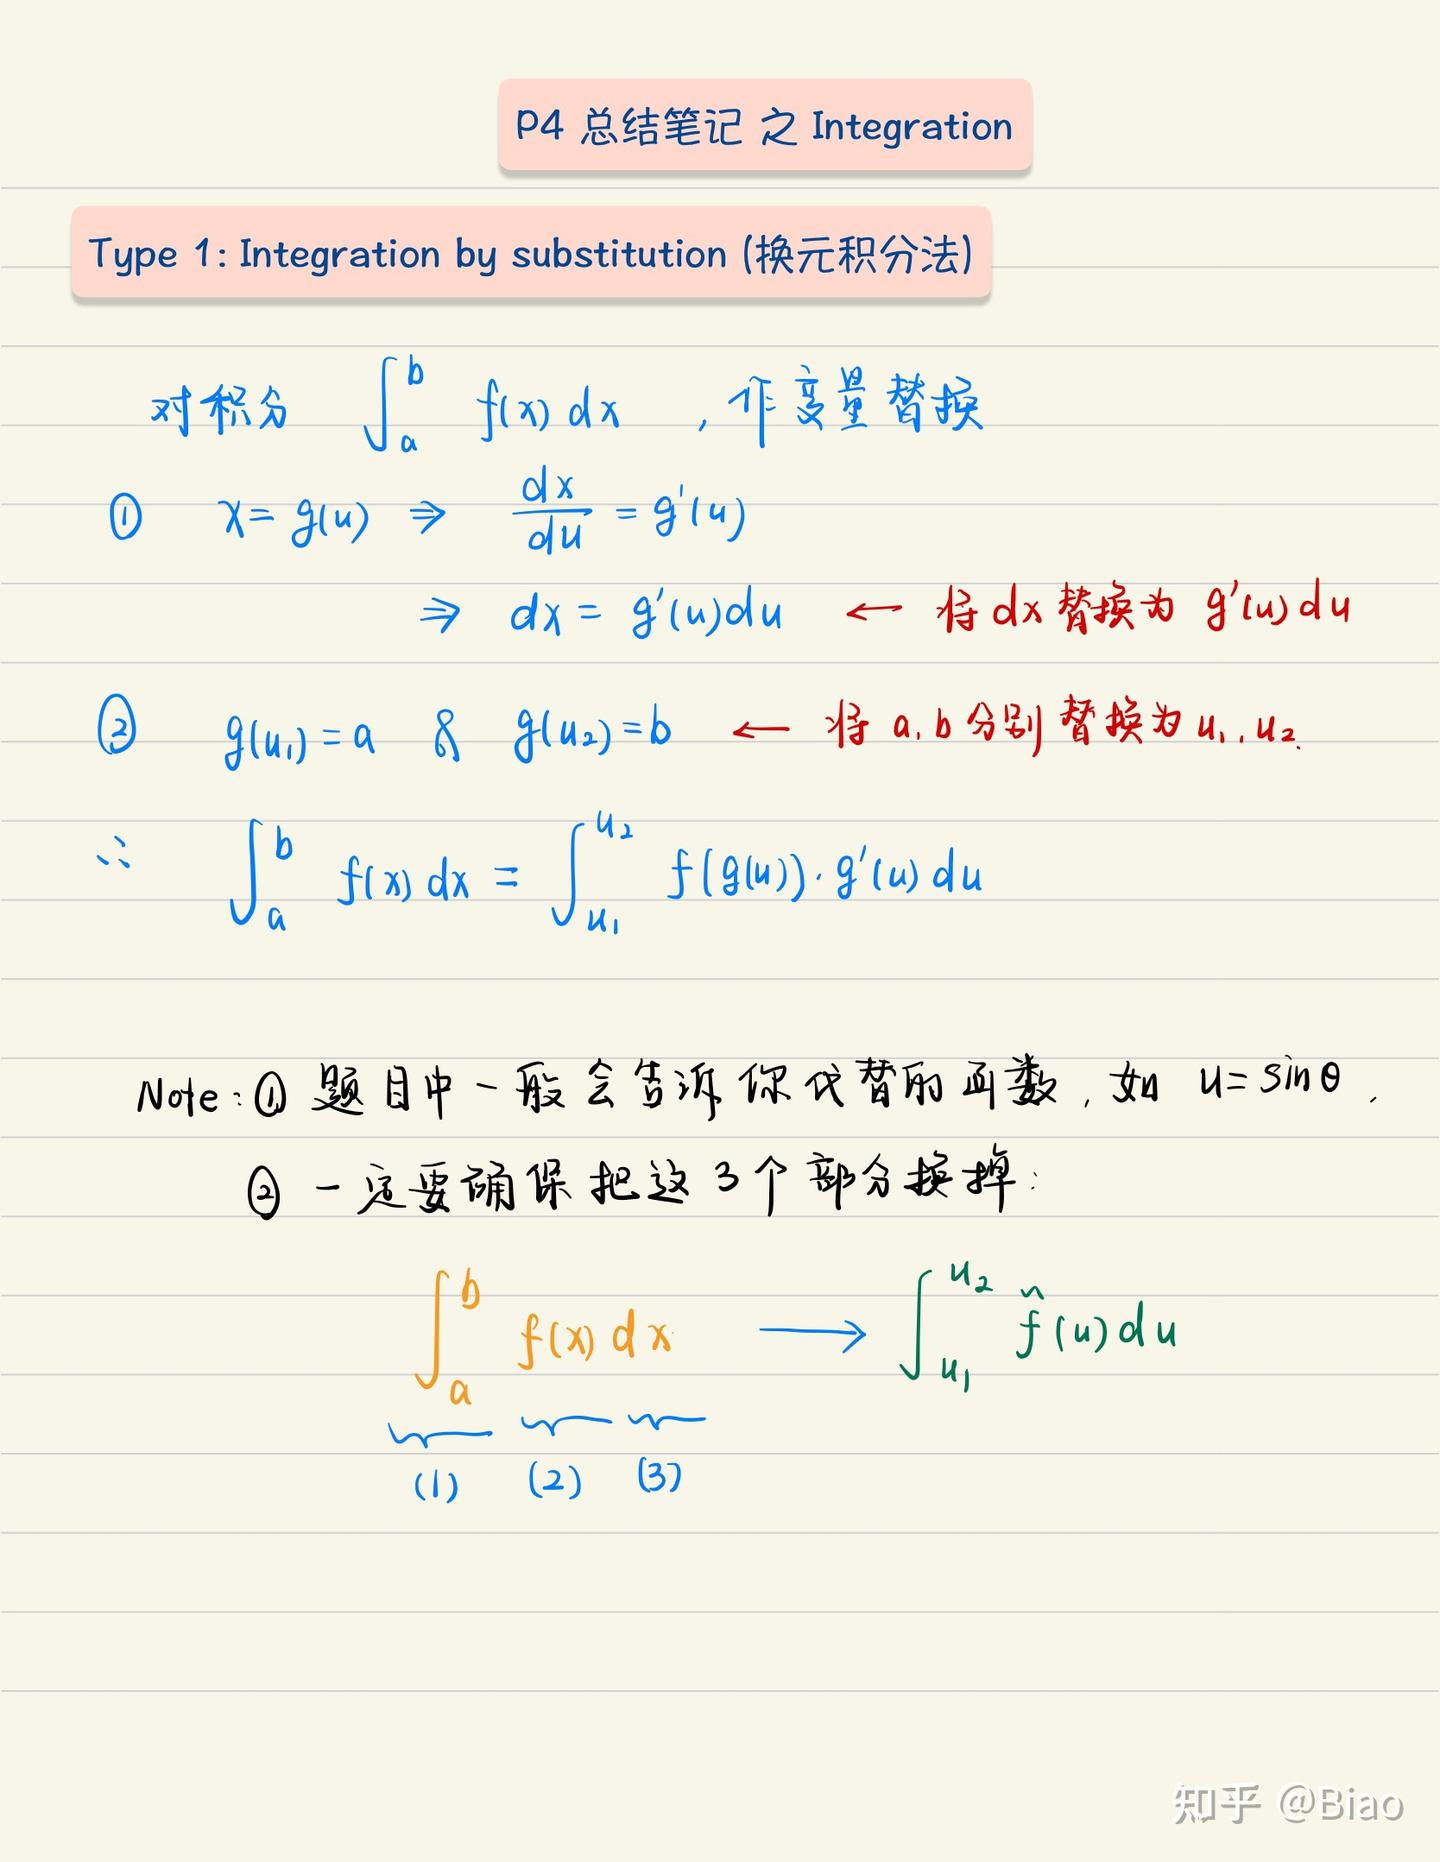 P4 总结笔记 之 Integration
Type 1: Integration by substitution (换元积分法)
对积分 ∫_a^b f(x) dx , 作变量替换
① x = g(u) ⇒ dx/du = g'(u)
⇒ dx = g'(u)du ← 将 dx 替换为 g'(u)du
② g(u₁) = a & g(u₂) = b ← 将 a, b 分别替换为 u₁, u₂.
∴ ∫_a^b f(x) dx = ∫_{u₁}^{u₂} f(g(u))·g'(u) du
Note: ① 题目中一般会告诉你代替的函数, 如 u = sinθ.
② 一定要确保把这3个部分换掉:
∫_a^b f(x) dx → ∫_{u₁}^{u₂} f̃(u) du
(1) (2) (3)
知乎 @Biao